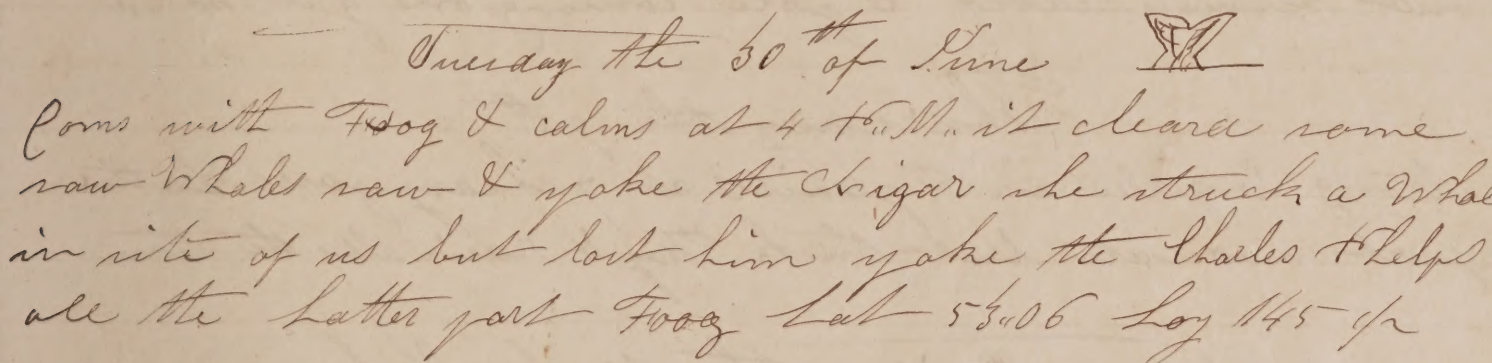 Tuesday the 30th of June
Coms with Foog & calms at 4 P,,M,, it cleard some
saw Whales saw & spoke the Nigar she struck a Whale
in site of us but lost him spoke the Charles Phelps
all the Latter part Foog Lat 53,,06 Log 145